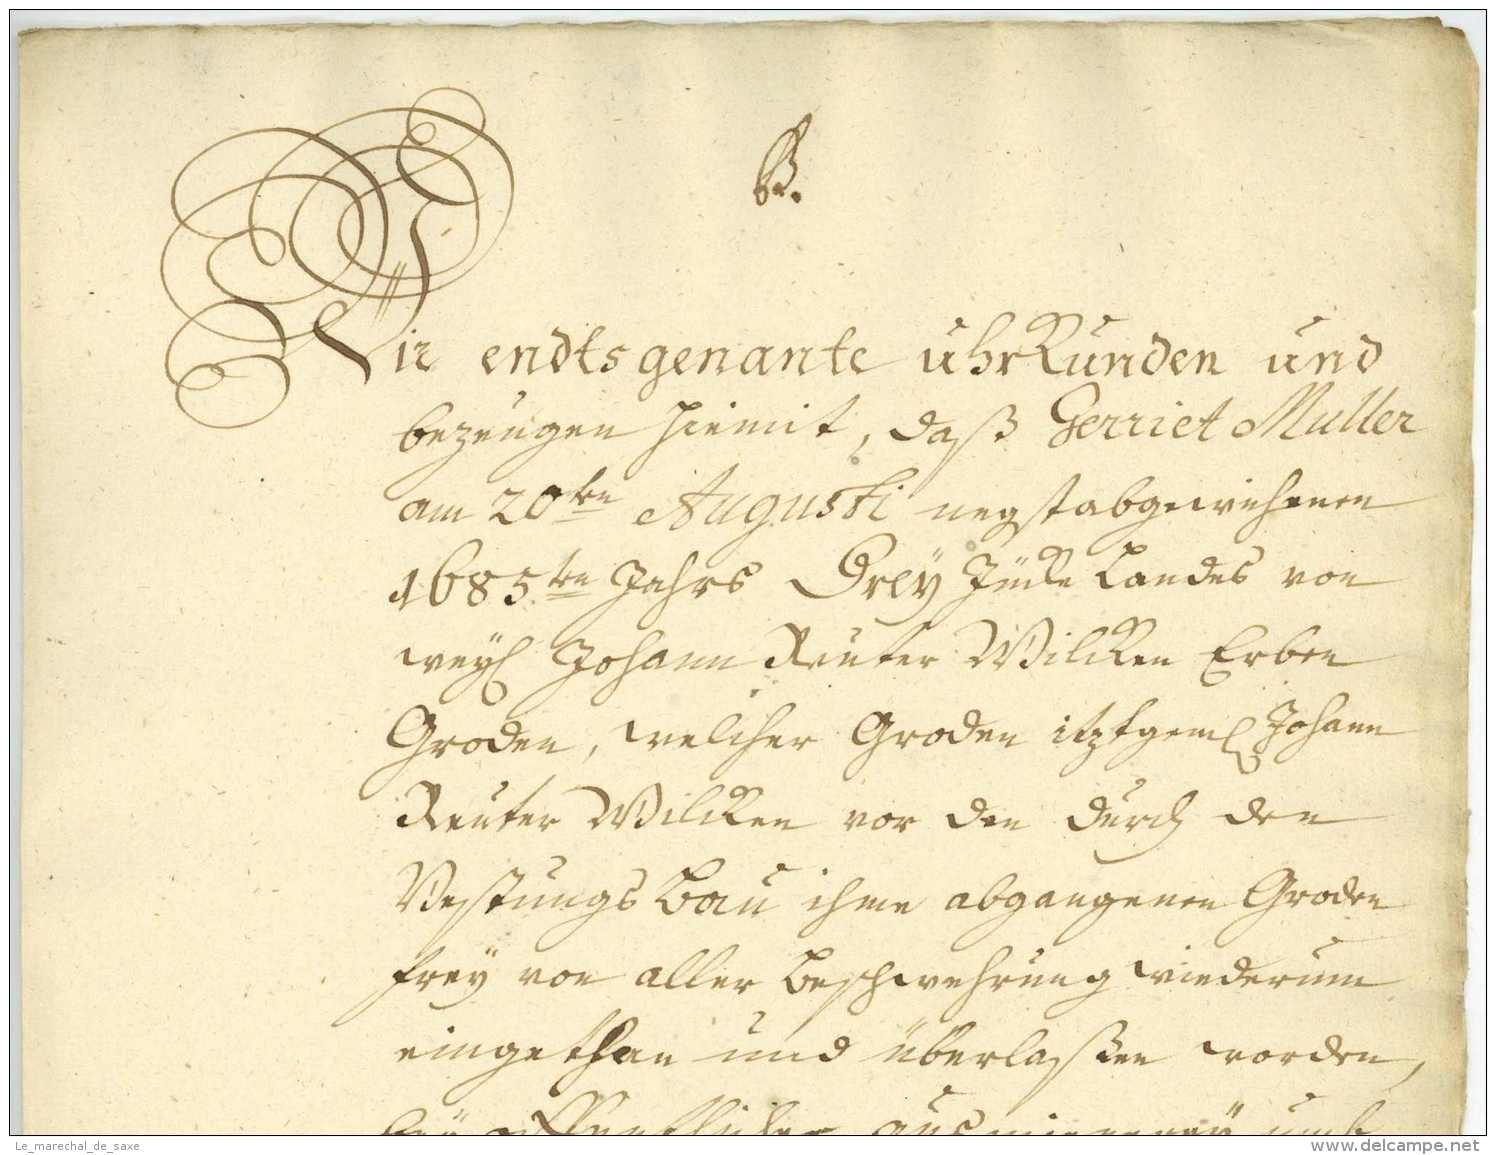 B.
Wir endts genante uhrkunden und
bezeugen hiemit, daß Gerriet Muller
am 20ten Augusti negstabgewichenen
1685ten Jahrs Drey Jück Landes von
weyl Johann Reuter Wilcken Erben
Groden, welcher Groden itztgeml Johann
Reuter Wilcken vor den durch den
Vestungs bau ihme abgangenen Groden
frey von aller beschwehrung wiederum
eingethan und überlaßen worden,
bey öffentlicher ausmienerey umb
Le_marechal_de_saxe
www.delcampe.net